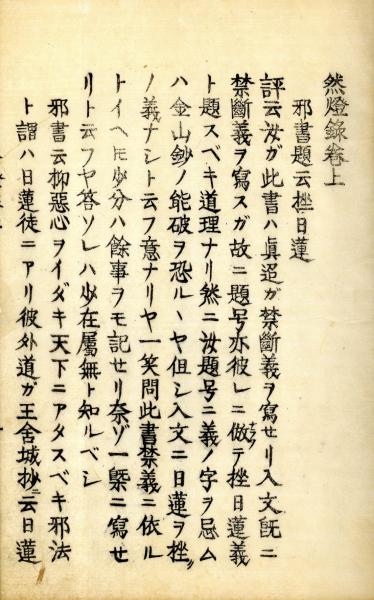 然燈錄卷上
邪書題云挫日蓮
評云汝ガ此書ハ眞迢ガ禁斷義ヲ寫セリ入文旣ニ
禁斷義ヲ寫スガ故ニ題号亦彼レニ倣テ挫日蓮義
ト題スベキ道理ナリ然ニ汝題号ニ義ノ字ヲ忌ム
ハ金山鈔ノ能破ヲ恐ルヽヤ但シ入文ニ日蓮ヲ挫
ノ義ナシト云フ意ナリヤ一笑問此書禁義ニ依ル
トイヘ𪜈少分ハ餘事ヲモ記セリ奈ゾ一槩ニ寫セ
リト云フヤ答ソレハ少在屬無ト知ルベシ
邪書云抑惡心ヲイダキ天下ニアタスベキ邪法
ト謂ハ日蓮徒ニアリ彼外道ガ王舍城抄ニ云日蓮